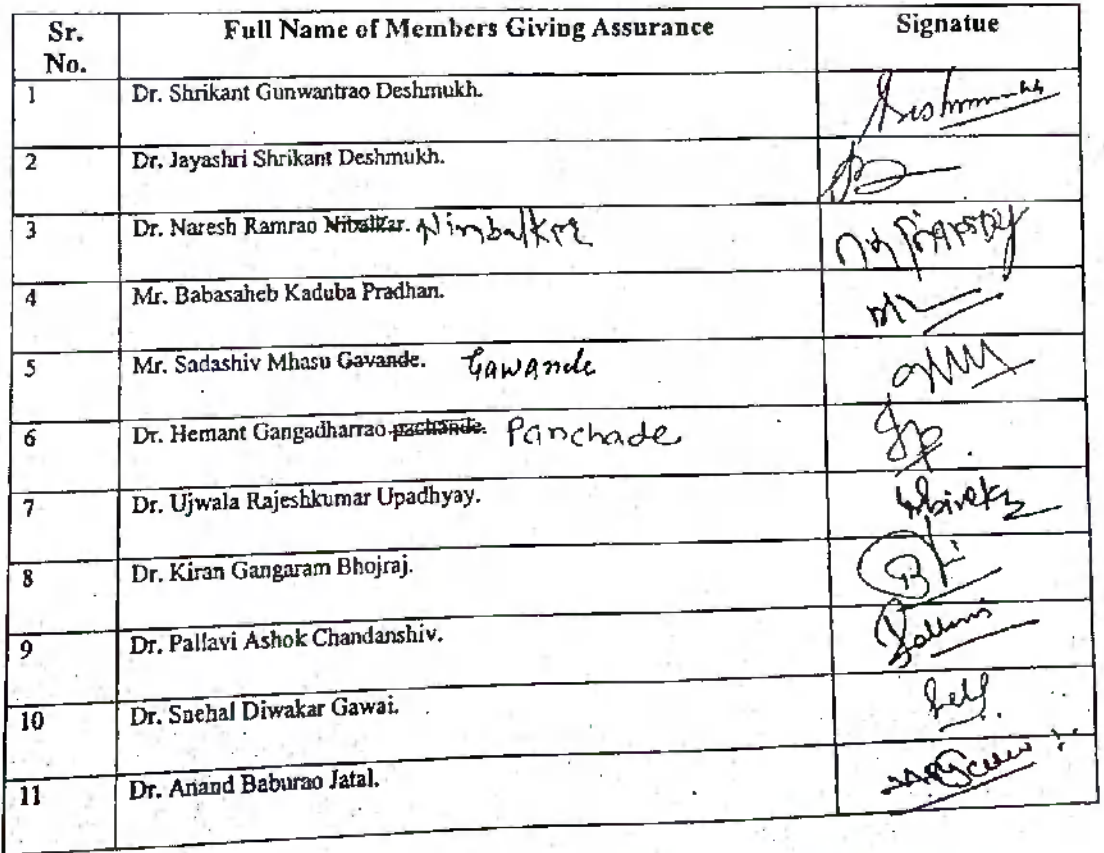 Sr. No. Full Name of Members Giving Assurance Signatue
1 Dr. Shrikant Gunwantrao Deshmukh.
2 Dr. Jayashri Shrikant Deshmukh.
3 Dr. Naresh Ramrao Nibalkar. Nimbalkar
4 Mr. Babasaheb Kaduba Pradhan.
5 Mr. Sadashiv Mhasu Gavande. Gawande
6 Dr. Hemant Gangadharrao pachande. Panchade
7 Dr. Ujwala Rajeshkumar Upadhyay.
8 Dr. Kiran Gangaram Bhojraj.
9 Dr. Pallavi Ashok Chandanshiv.
10 Dr. Snehal Diwakar Gawai.
11 Dr. Anand Baburao Jatal.